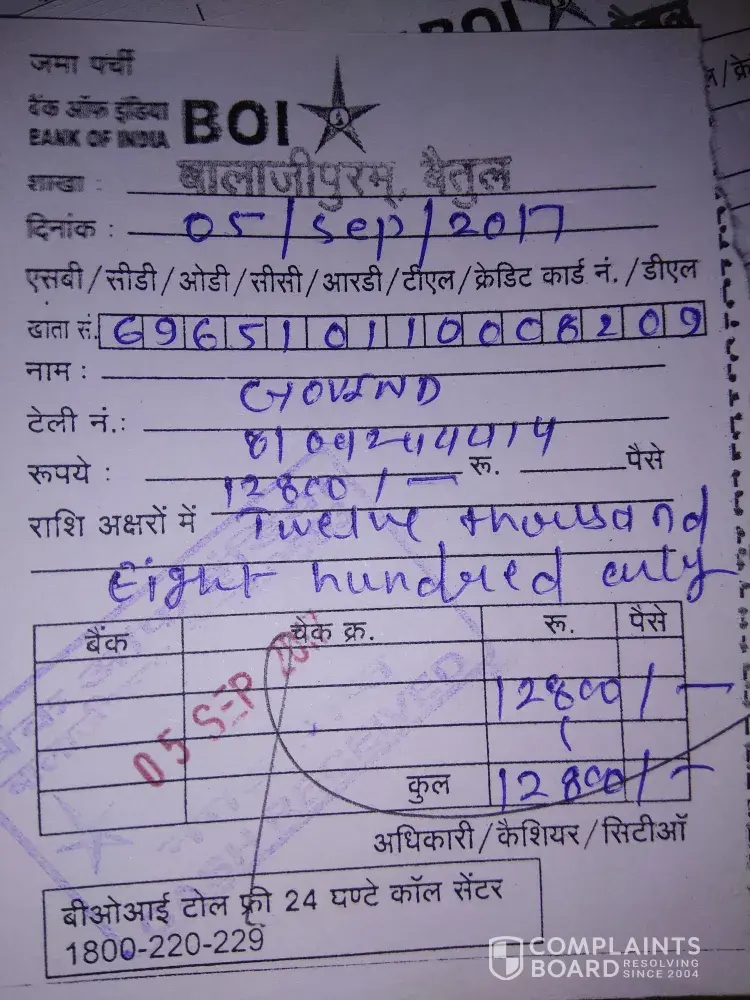 BOI
जमा पर्ची
बैंक ऑफ इंडिया BOI
BANK OF INDIA
शाखा : बालाजीपुरम्, बैतुल
दिनांक : 05/Sep/2017
एसबी/सीडी/ओडी/सीसी/आरडी/टीएल/क्रेडिट कार्ड नं./डीएल
खाता सं. 696510110008209
नाम : GOVIND
टेली नं.:
रूपये : 12800/- रू. पैसे
राशि अक्षरों में Twelve thousand
Eight hundred only
बैंक चैक क्र. रू. पैसे
12800/-
05 SEP 2017
कुल 12800/-
CASH RECEIVED
अधिकारी/कैशियर/सिटीऑ
बीओआई टोल फ्री 24 घण्टे कॉल सेंटर
1800-220-229
COMPLAINTS
BOARD RESOLVING
SINCE 2004